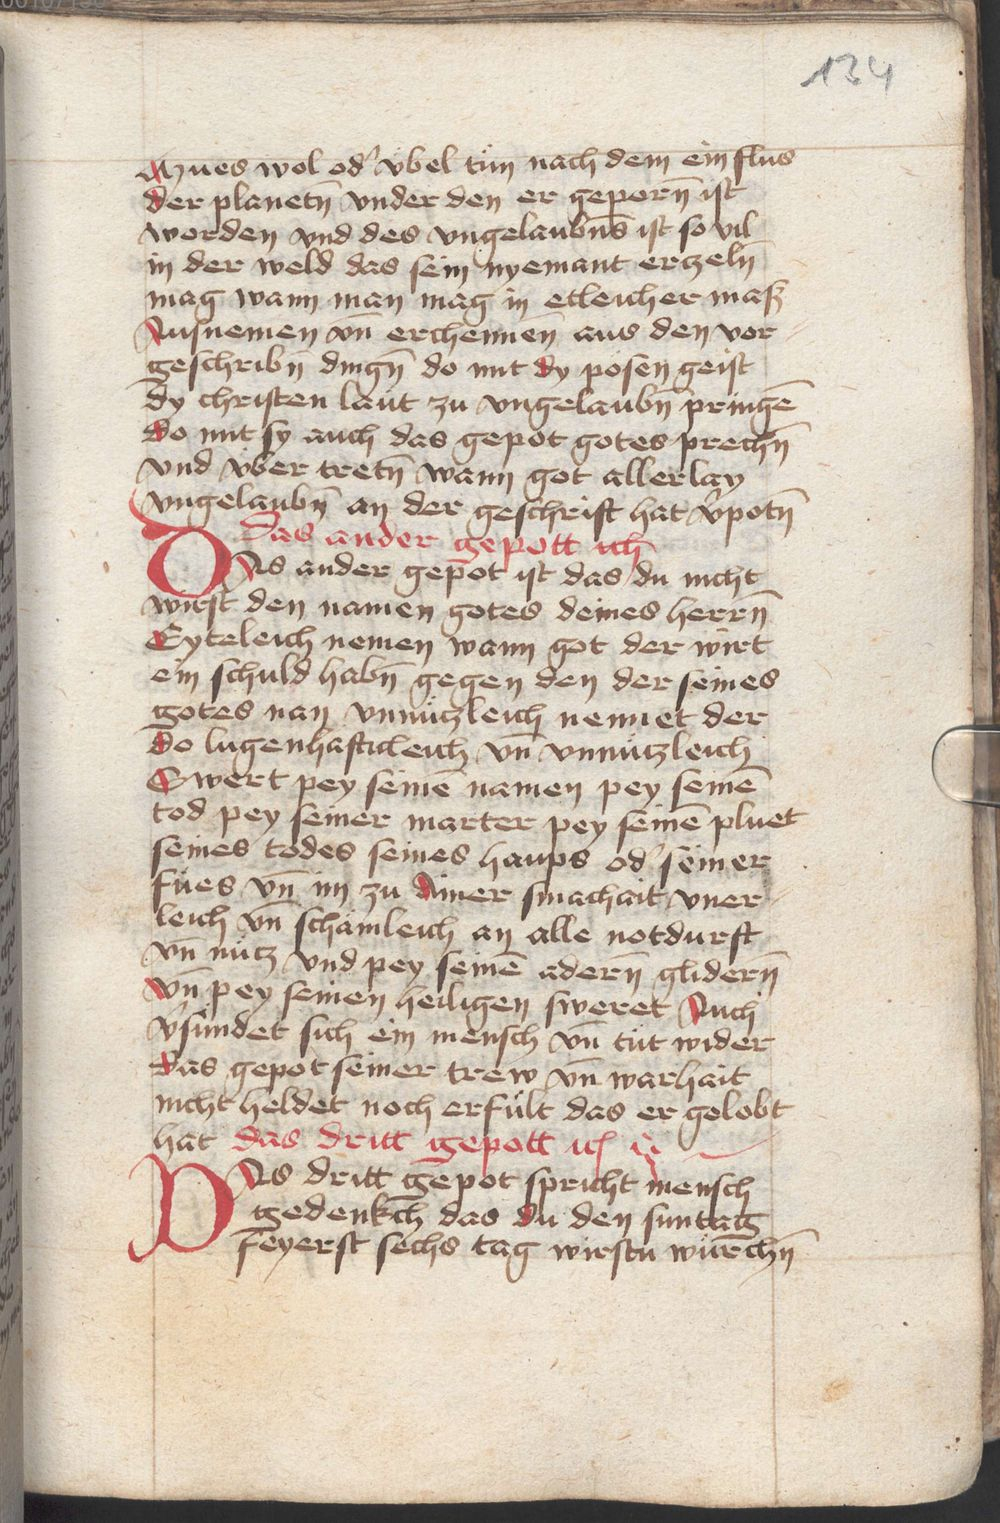 134
Mues wol od' vbel tün nach dem ein flus
der planetn̄ vnder den er geporn̄ ist
worden vnd des vngelaubn̄s ist so vil
in der weld das sein nyemant erzeln̄
mag wann man mag in etleicher maß
Ausnemen vn̄ erchennen aus den vor
geschribn̄ dingn̄ do mit dy posen geist
dy christen laüt zu vngelaubn̄ pringē
do mit sy auch das gepot gotes prechn̄
vnd vber tretn̄ wann got allerlay
vngelaubn̄ an der geschrift hat v'potn̄
Das ander gepott
DAs ander gepot ist das du nicht
wirst den namen gotes deines herrn̄
Eyteleich nemen wann got der wirt
ein schuld habn̄ gegen den der seines
gotes nan vnnüczleich nennet der
do lugenhafticleich vn̄ vnnüczleich
Swert pey seinē namen pey seinē
tod pey seiner marter pey seinē pluet
seines todes seines haups od' seiner
fües vn̄ im zu ainer smachait vner
leich vn̄ schämleich an alle notdurft
vn̄ nücz vnd pey seinē adern̄ glidern̄
vn̄ pey seinen heiligen sweret Auch
v'sündet sich ein mensch vn̄ tüt wider
das gepot seiner trew vn̄ warhait
nicht heldet noch erfült das er golobt
hat das dritt gepott
DAs dritt gepot spricht mensch
gedenkch das du den suntag
feyerst sechs tag wirstu würchn̄